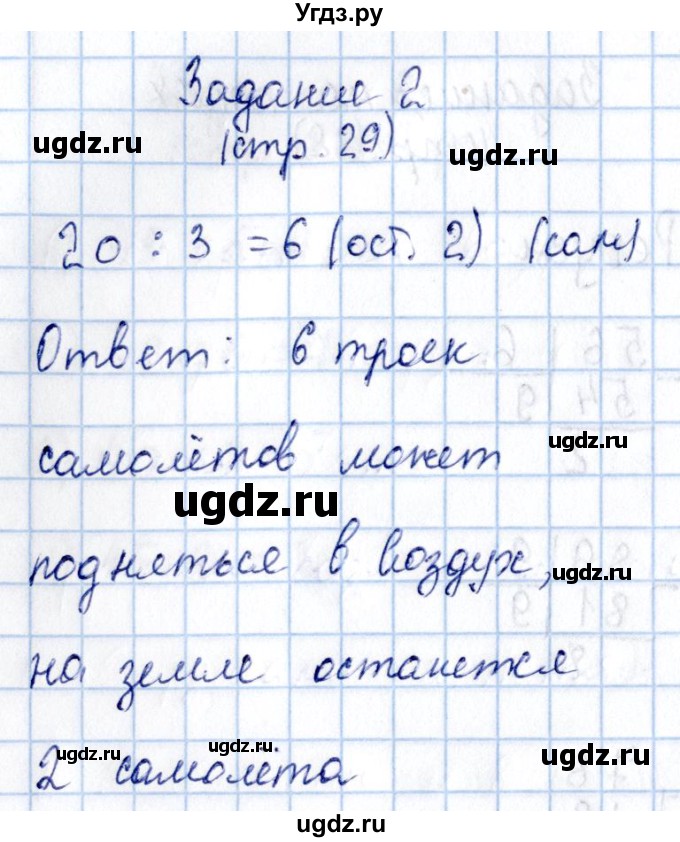 Угдз.ру
Задание 2
ugdz.ru
(стр. 29)
ugdz.ru
20 : 3 = 6 (ост. 2) (сам)
Ответ: 6 троек
самолётов может
ugdz.ru
ugdz.ru
подняться в воздух,
ugdz.ru
на земле останется
ugdz.ru
ugdz.ru
ugdz.ru
2 самолёта
ugdz.ru